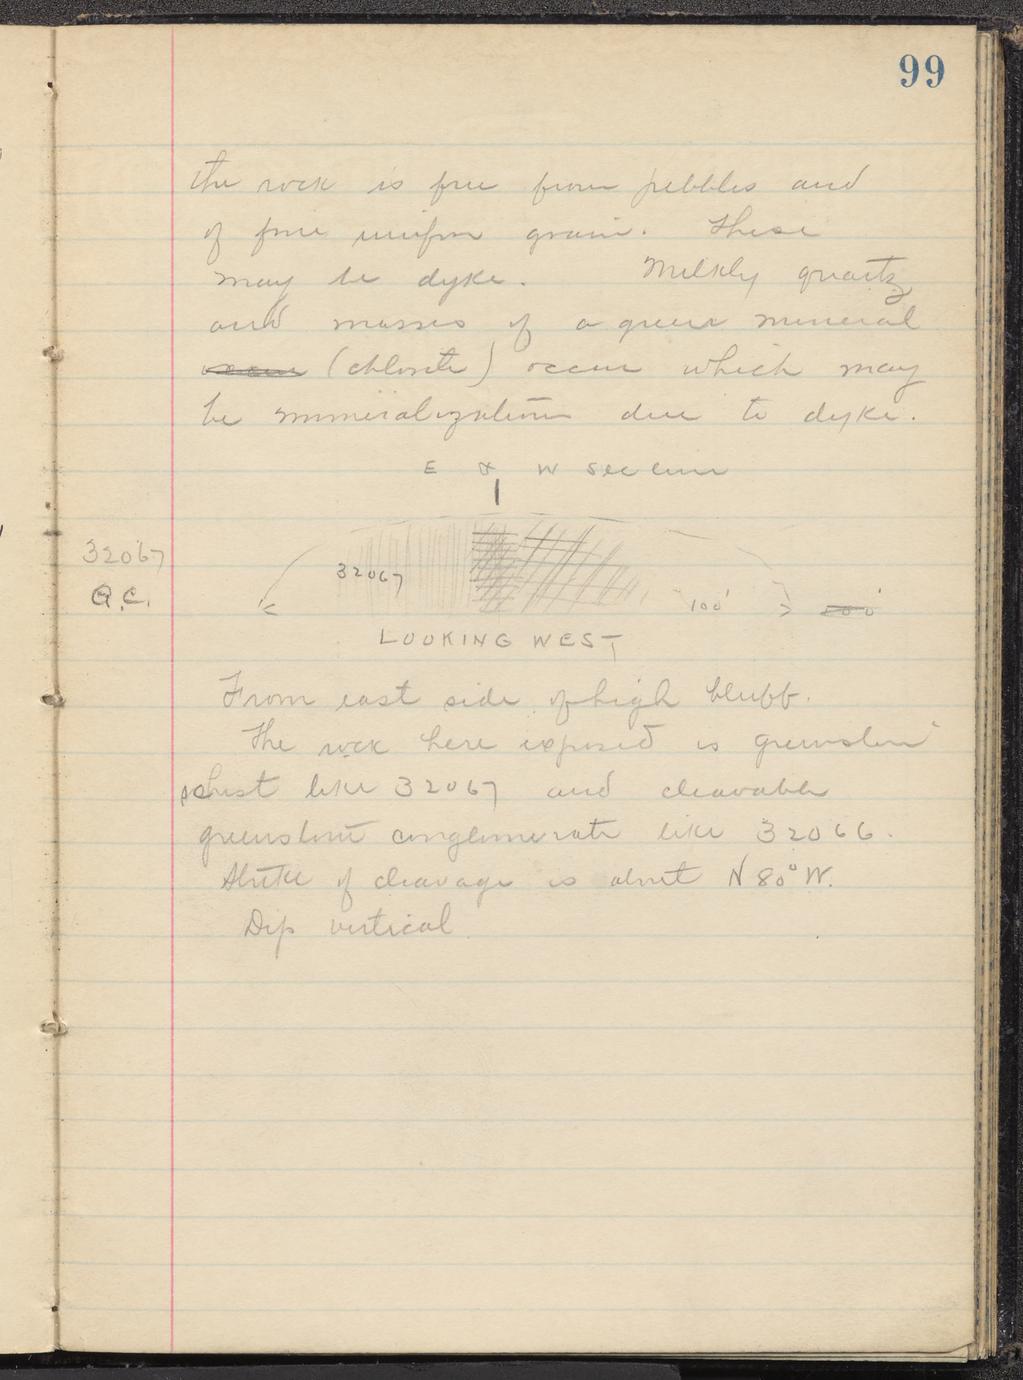 99
the rock is free from pebbles and
of fine uniform grain. These
may be dyke. Milkly quartz
and masses of a green mineral
occur (chlorite) occur which may
be mineralization due to dyke.
E & W Sec line
32067
Q.C.
32067
100'
100'
LOOKING WEST
From east side of high bluff.
The rock here exposed is greenstone
schist like 32067 and cleavable
greenstone conglomerate like 32066.
Strike of cleavage is about N 80° W.
Dip vertical